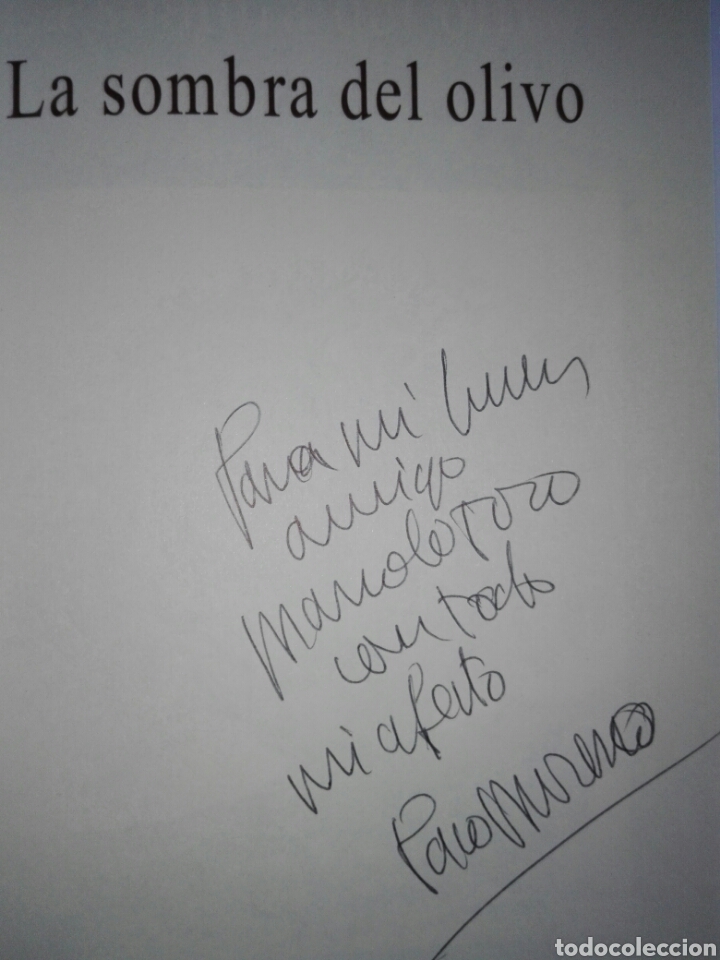 La sombra del olivo
Para mi buen
amigo
Manolo Toro
con todo
mi afecto
Paco Moreno
todocoleccion